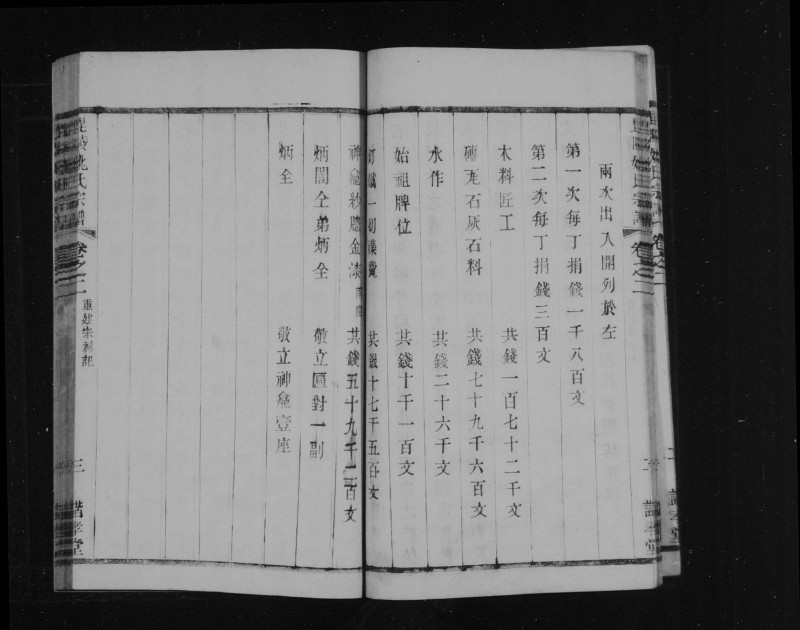 兩次出入開列於左
第一次每丁捐錢一千八百文
第二次每丁捐錢三百文
木料匠工 共錢一百七十二千文
磚瓦石灰石料 共錢七十九千六百文
水作 共錢二十六千文
始祖牌位 共錢十千一百文
釘鐵一切襍費 共錢十七千五百文
神龕粉牕金漆 共錢五十九千二百文
炳閤仝弟炳全 敬立匾對一副
炳全 敬立神龕壹座
毘陵姚氏宗譜 卷之二 重建宗祠記 三 誥孝堂